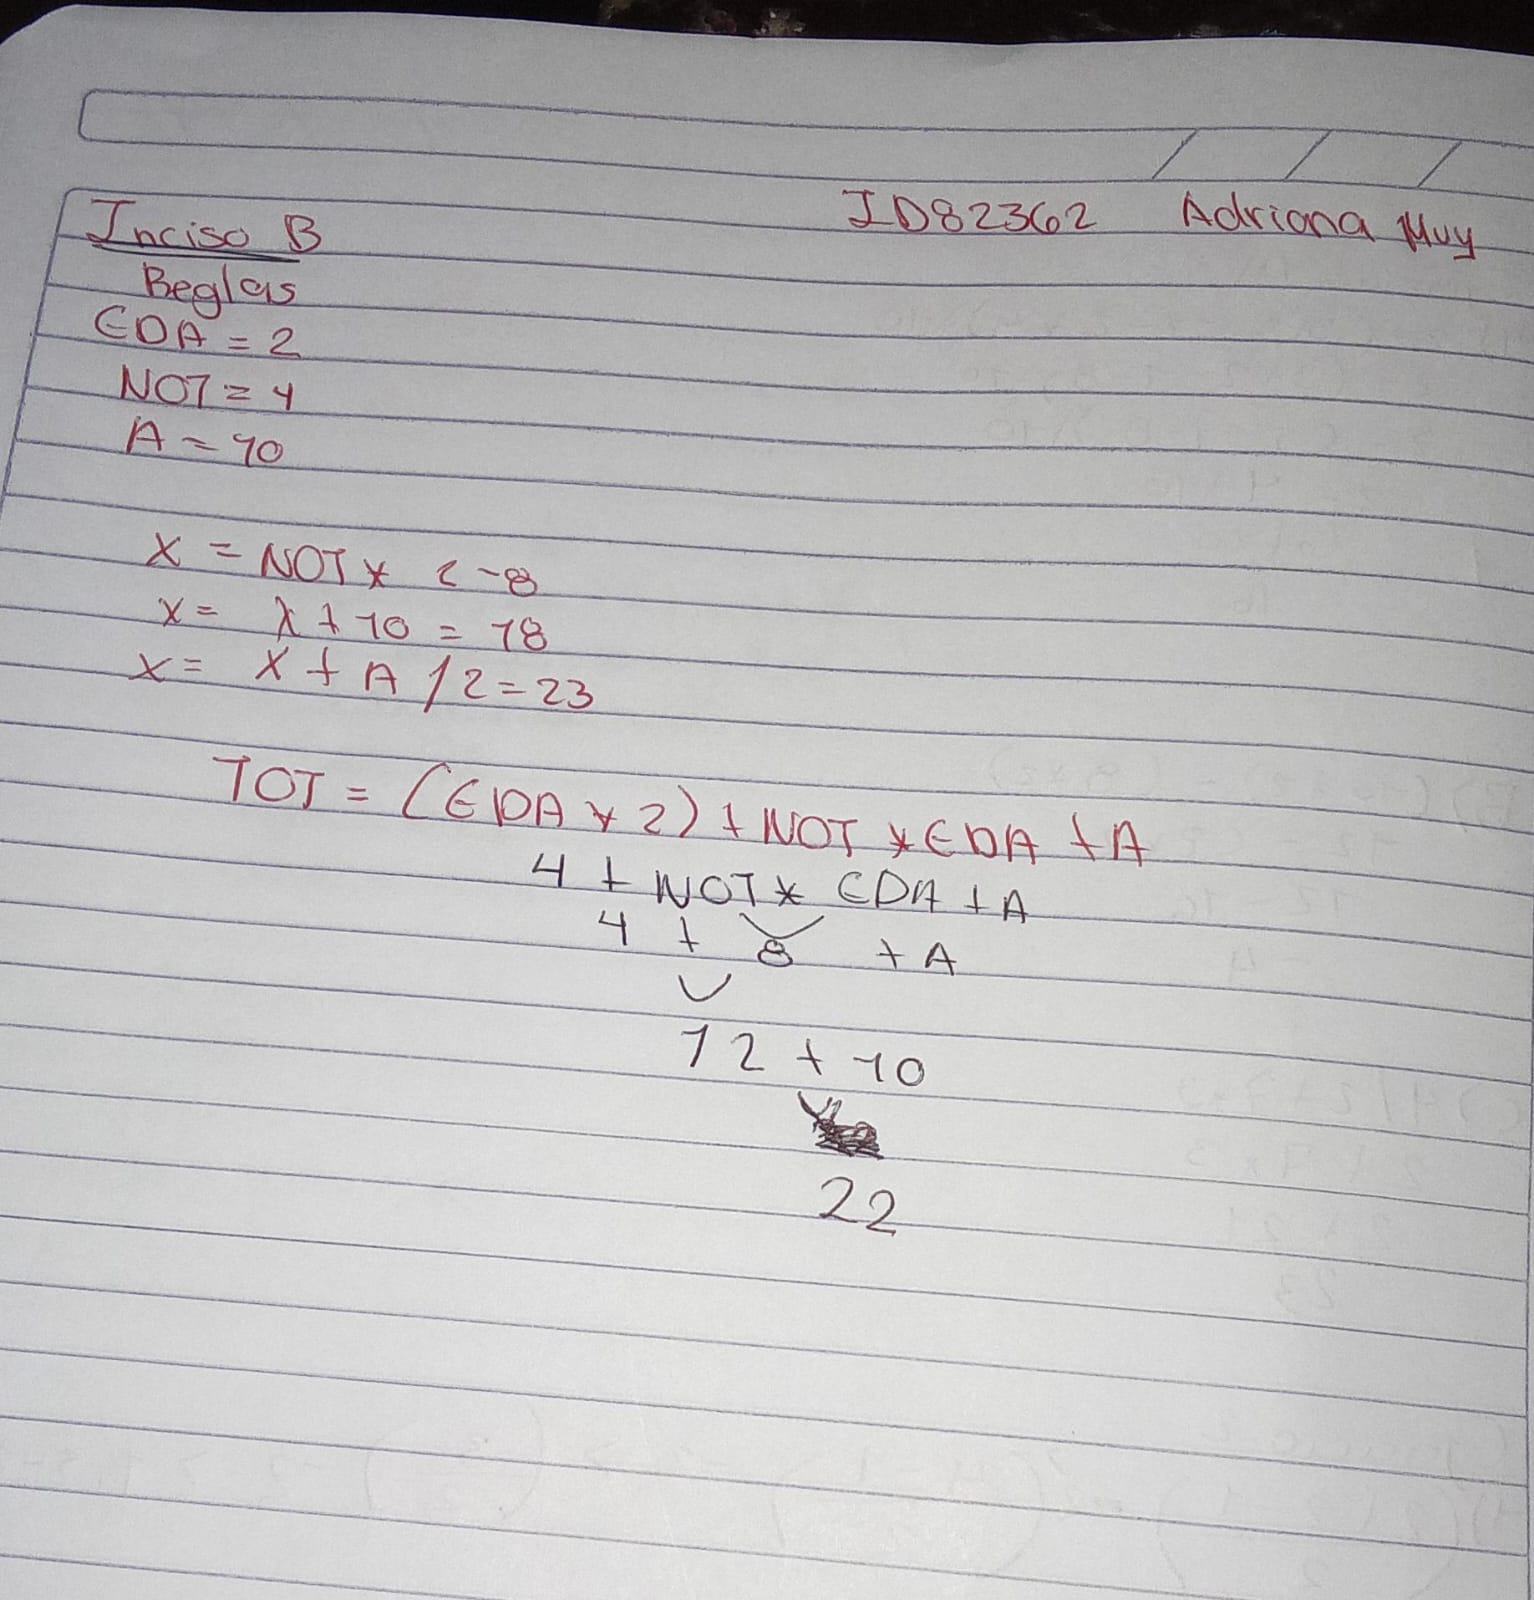 ID82362 Adriana Muy
Inciso B
Reglas
EDA = 2
NOT = 4
A = 10
X = NOT * 2 - 8
X = X + 10 = 18
X = X + A / 2 = 23
TOT = (EDA * 2) + NOT * EDA + A
4 + NOT * EDA + A
4 + 8 + A
12 + 10
22